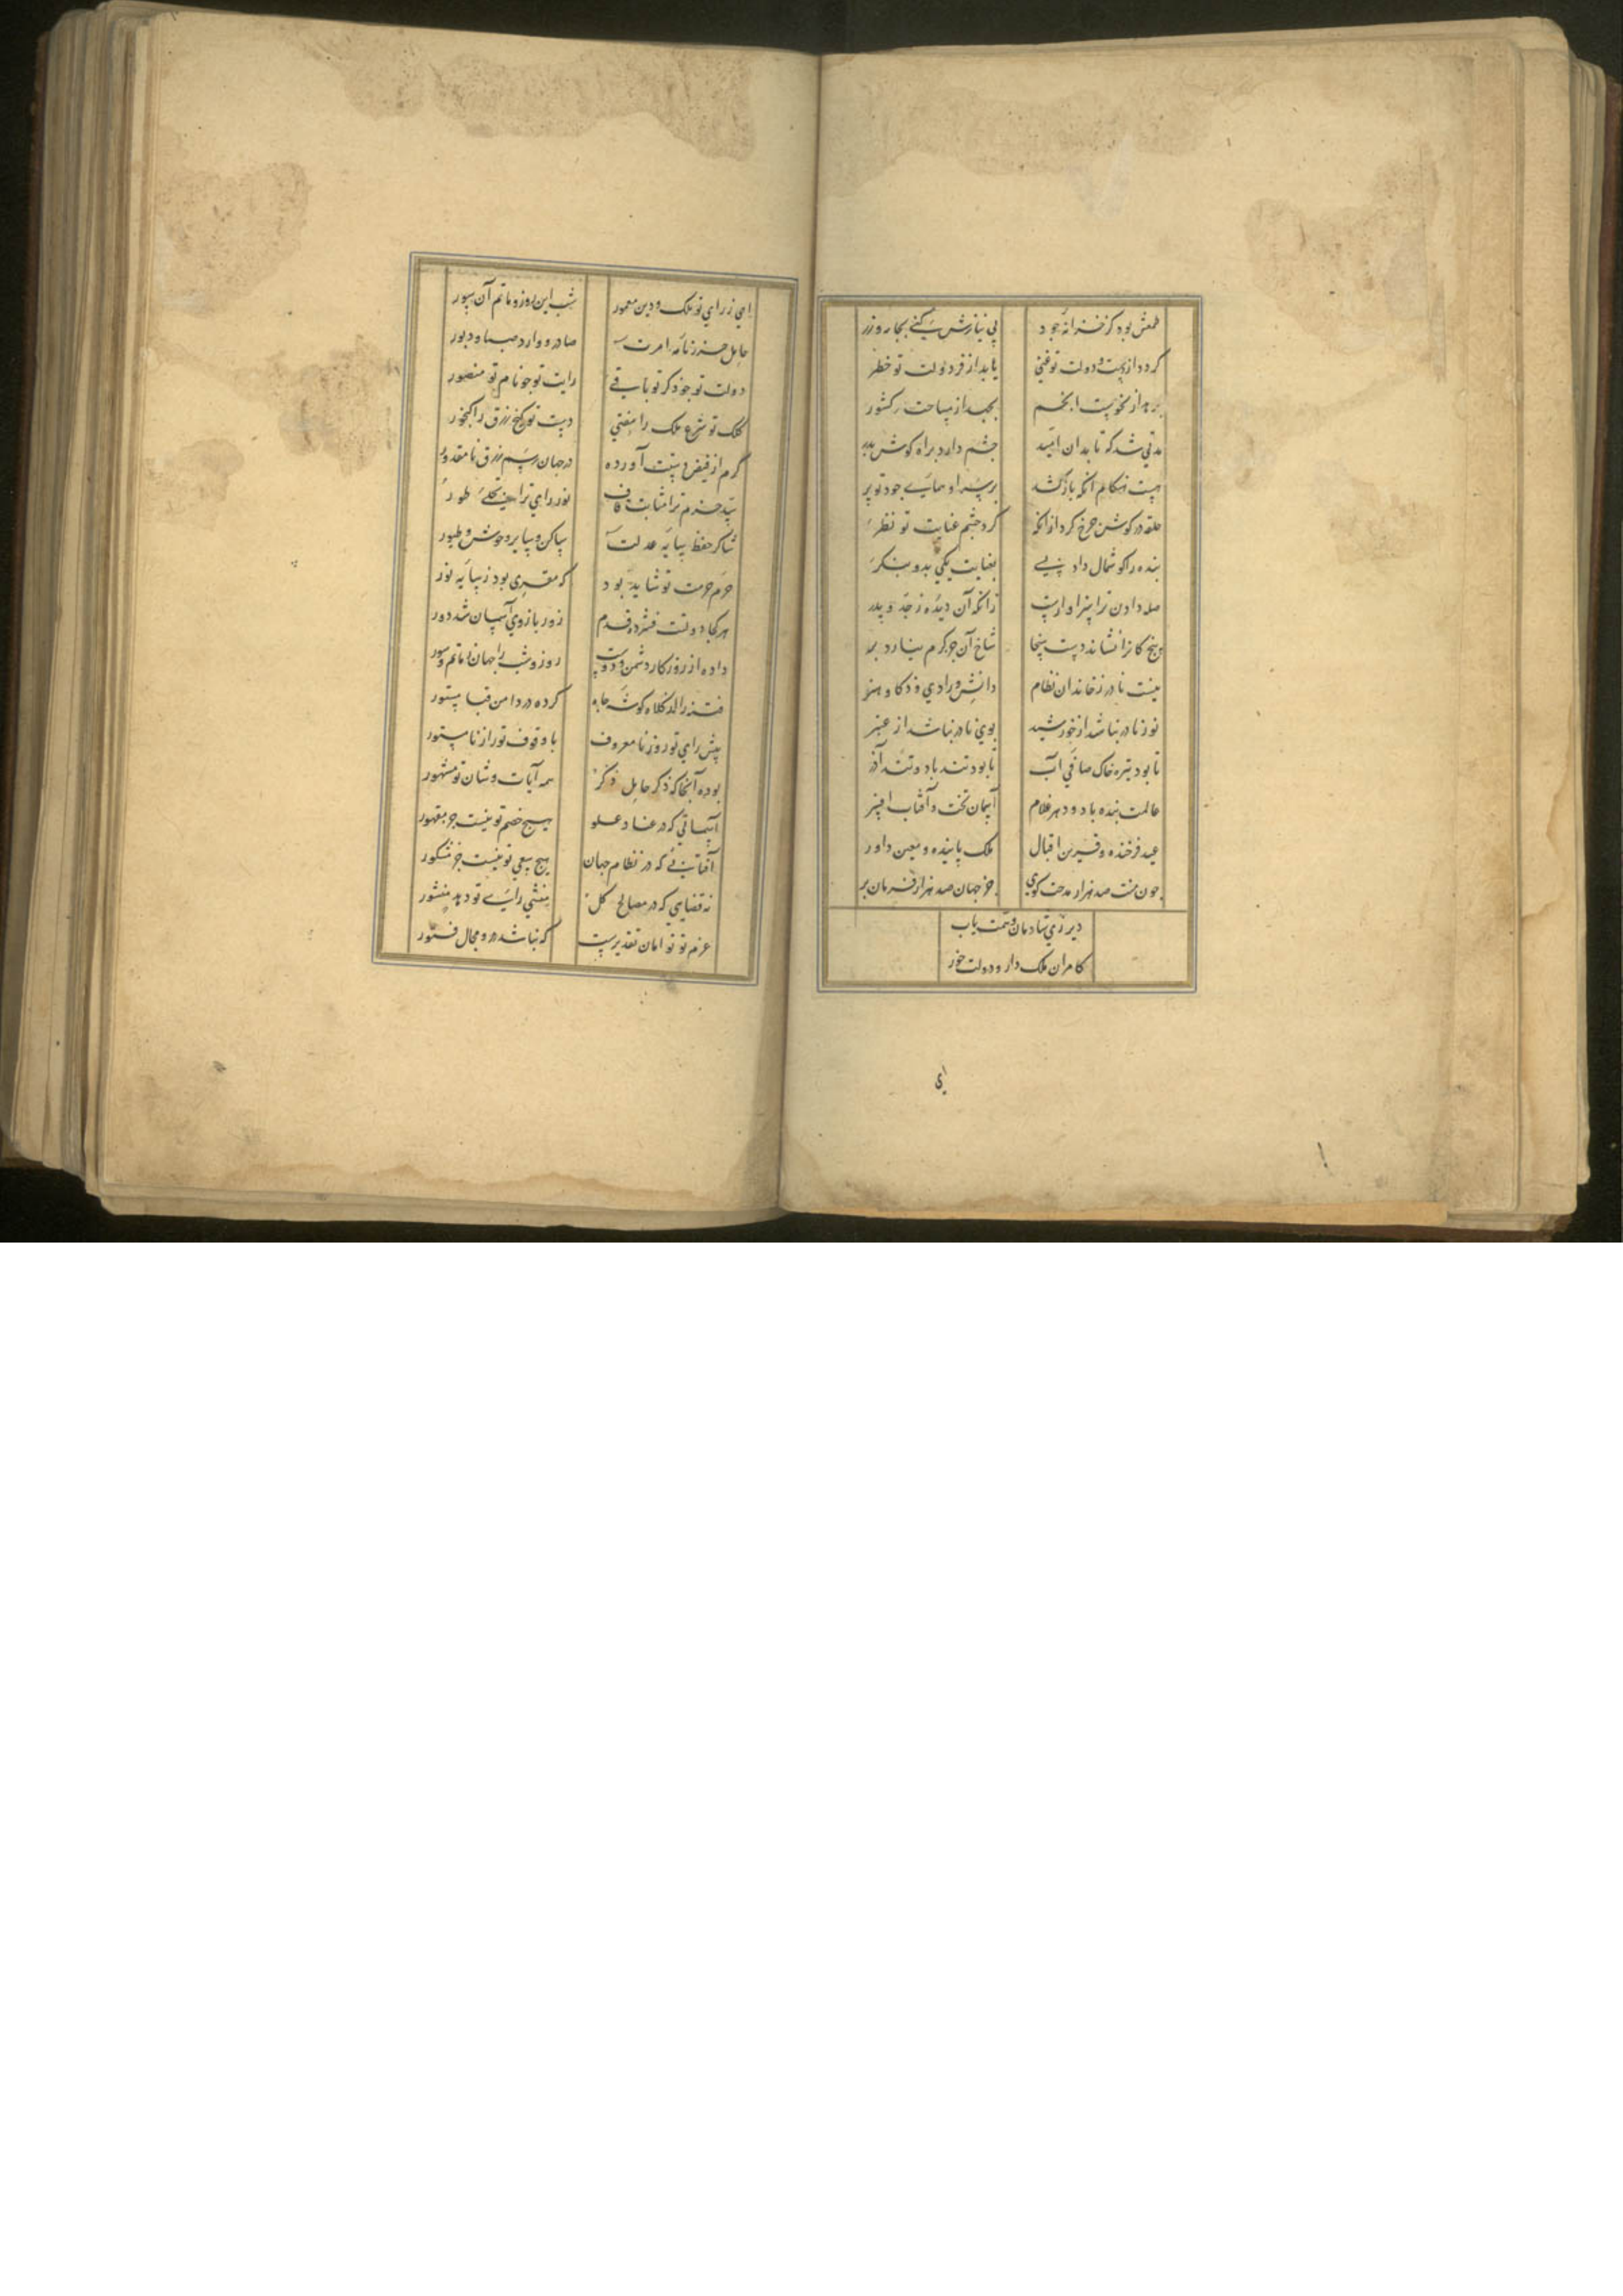 طمعش بود کز خزانه جود بی نیازش کنی بجامه و زر
کردد از یمن دولت تو غنی یابد از فر دولت تو خطر
برهد از نحوست انجم بجهد از مساحت کشور
مدتی شد که تا بدان امید چشم دارد براه کوش بدر
هست هنکام آنکه باز کشد بر سر او همای جود تو پر
حلقه در کوش چرخ کرد از آنکه کرد چشم عنایت تو نظر
بنده را کوشمال داد بسی بعنایت یکی بدو بنکر
صله دادن ترا سزاوارست زانکه آن دیده ز جد و پدر
بیخ کانرا نشاند دست سخا شاخ آن جز کرم نیارد بر
نیست نادر ز خاندان نظام دانش و رادی و ذکا و هنر
نور نادر نباشد از خورشید بوی نادر نباشد از عنبر
تا بود تیره خاک صافی آب تا بود تند باد و تند آذر
عالمت بنده باد و دهر غلام آسمان تخت و آفتاب افسر
عید فرخنده و قرین اقبال ملک پاینده و معین داور
چون منت صد هزار مدحت کوی چو جهان صد هزار فرمان بر
دیر زی شادمان و نعمت یاب
کامران ملک دار و دولت خور
ای
ای ز رای تو ملک و دین معمور شب این روز و ماتم آن سور
حامل حرز نامه امرت صادر و وارد صبا و دبور
دولت تو چو ذکر تو باقی رایت تو چو نام تو منصور
کلک تو شرع ملک را مفتی دست تو کنج رزق را کنجور
کرم از فیض دستت آورده در جهان رسم رزق نا مقدور
سد حزم ترا متانت قاف نور رای ترا تجلی طور
شاکر حفظ سایه عدلت ساکن و سایر وحوش و طیور
حرم حرمت تو شاید بود که مقری بود ز سایه نور
هر کجا دولتت فشرده قدم زور بازوی آسمان شد دور
داده از روزکار دشمن و دوست روز و شب را جهان ماتم و سور
فتنه را کلاه کوشه جاه کرده در دامن قبا مستور
پیش رای تو روز نا معروف با وقوف تو راز نا مستور
بوده آنجا که ذکر حامل ذکر همه آیات و شان تو مشهور
آسمانی که در عناد علو هیچ خصم تو نیست جز مقهور
آفتابی که در نظام جهان هیچ سعی تو نیست جز مشکور
نه قضایی که در مصالح کل منشی رای تو دهد منشور
عزم تو توامان تقدیرست که نباشد درو مجال فتور